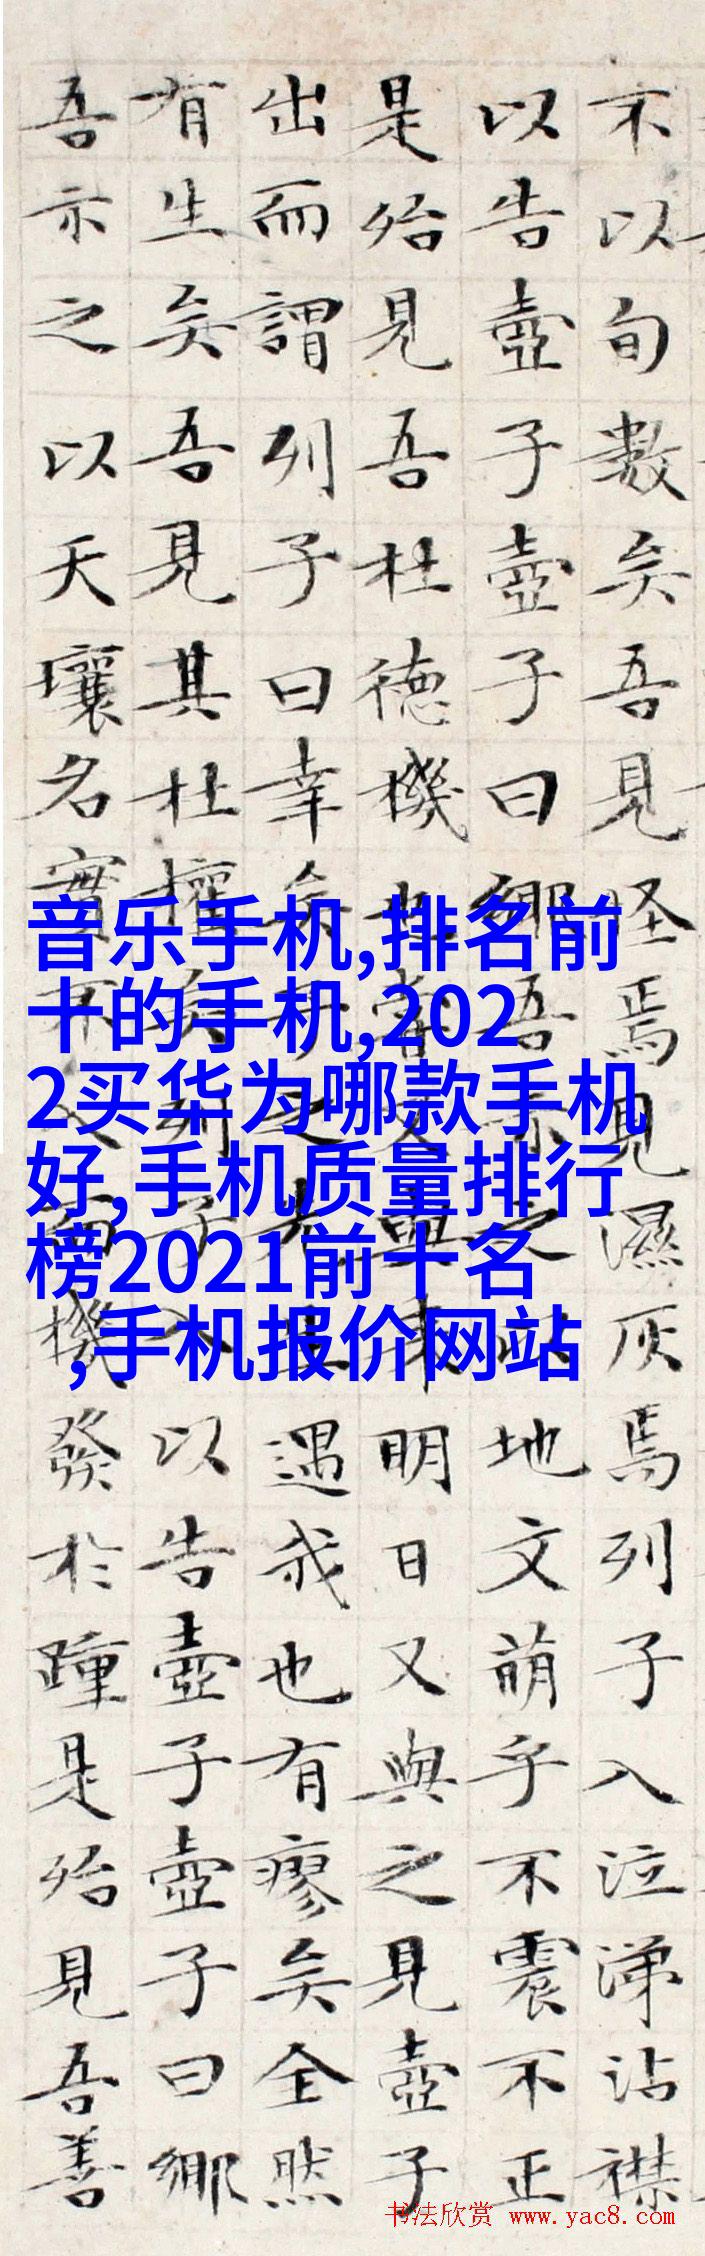 不以旬數矣吾見怪焉見濕灰焉列子入泣涕沾襟
以告壺子壺子曰鄉吾示之以地文萌乎不震不正
是殆見吾杜德機也嘗又與來明日又與之見壺子
出而謂列子曰幸矣子之先生遇我也有瘳矣全然
有生矣吾見其杜權矣列子入以告壺子壺子曰鄉
吾示之以天壤名實不入而機發於踵是殆見吾善
音乐手机,排名前
十的手机,202
2买华为哪款手机
好,手机质量排行
榜2021前十名
,手机报价网站
书法欣赏 www.yac8.com